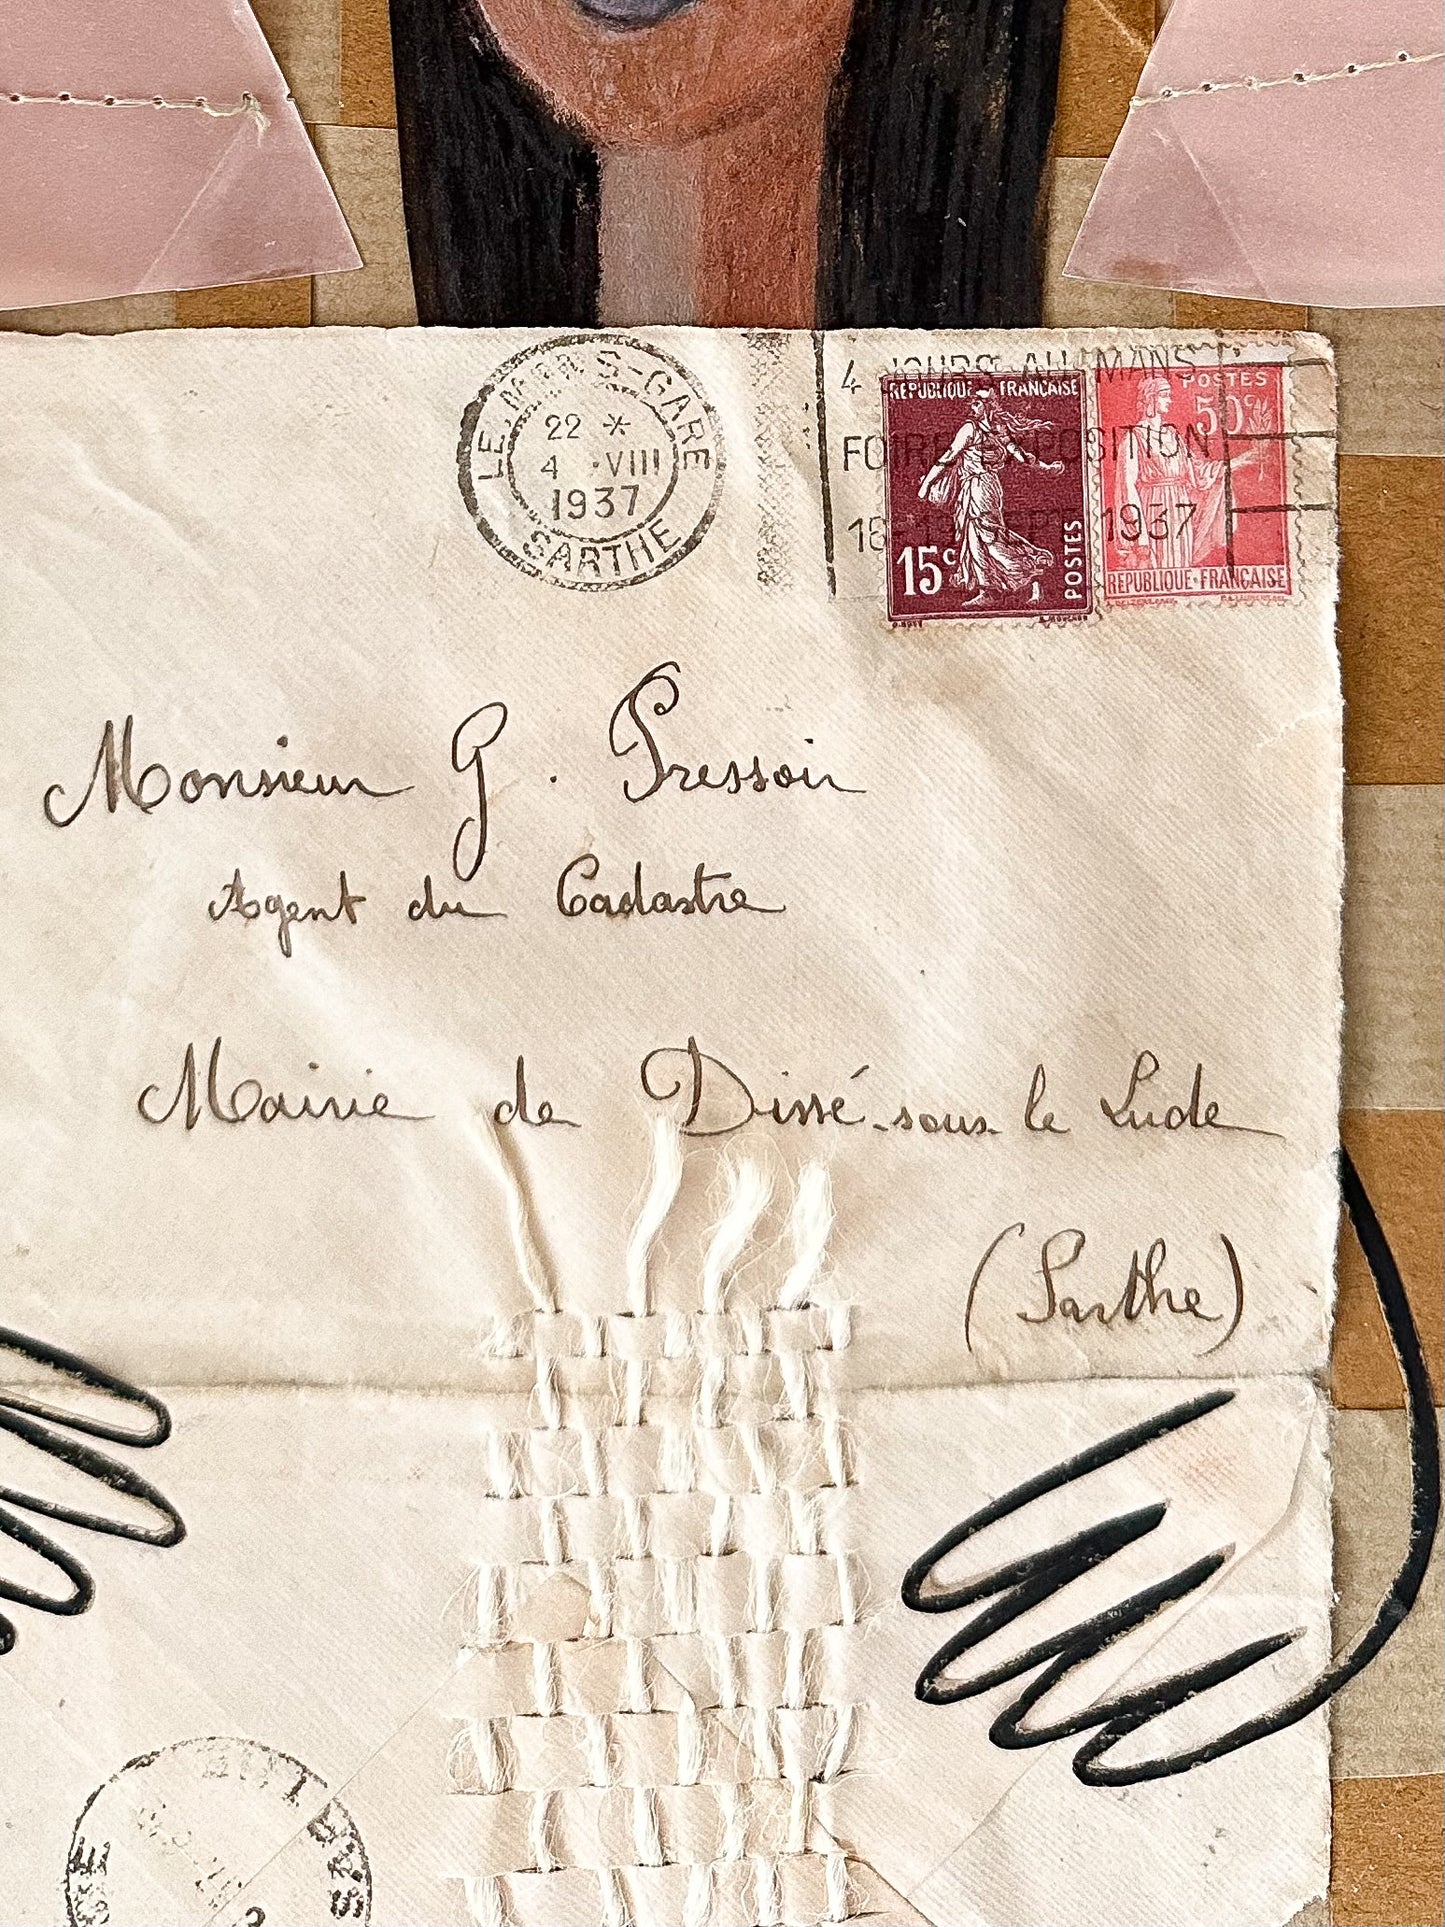 LE MANS-GARE
22 *
4 ·VIII
1937
SARTHE
4 JOURS AU MANS
FOIRE EXPOSITION
SEPT 1937
REPUBLIQUE FRANÇAISE
15c
POSTES
POSTES
50c
REPUBLIQUE·FRANÇAISE
Monsieur G. Pressoir
Agent du Cadastre
Mairie de Dissé-sous-le Lude
(Sarthe)
SARTHE